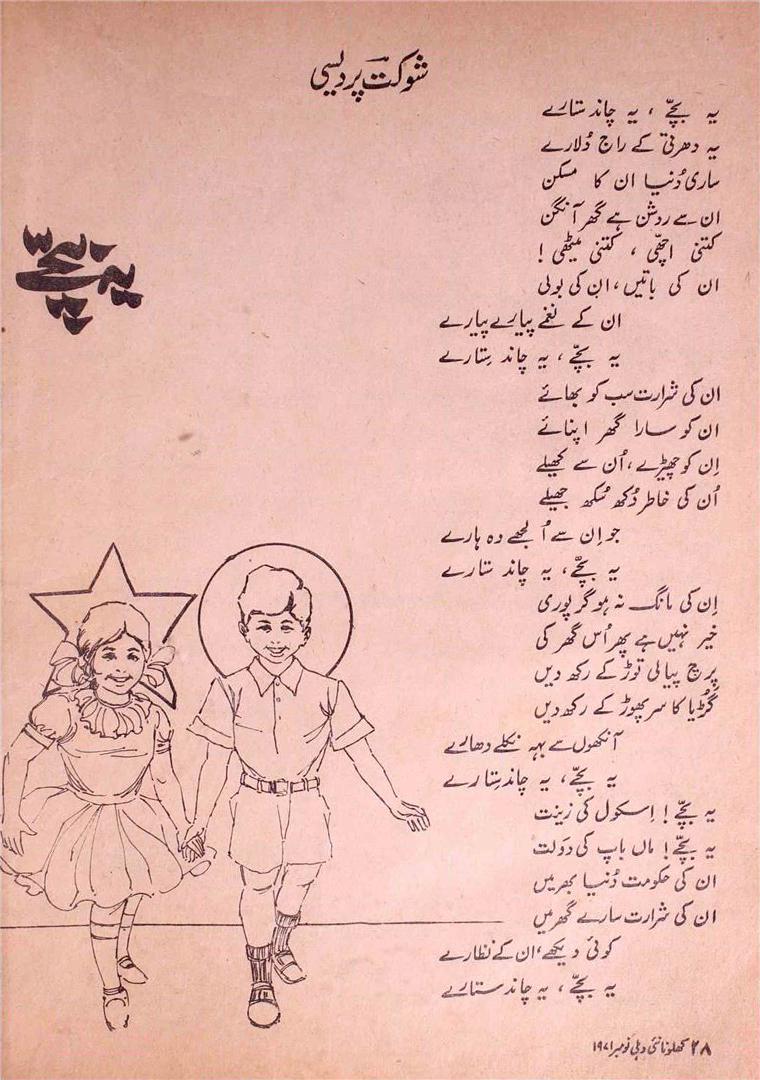 شوکت پردیسی
یہ بچّے
یہ بچّے ، یہ چاند ستارے
یہ دھرتی کے راج دُلارے
ساری دُنیا ان کا مسکن
ان سے روشن ہے گھر آنگن
کتنی اچّھی ، کتنی میٹھی !
ان کی باتیں ، ان کی بولی
ان کے نغمے پیارے پیارے
یہ بچّے ، یہ چاند ستارے
ان کی شرارت سب کو بھائے
ان کو سارا گھر اپنائے
اِن کو چھیڑے ، اُن سے کھیلے
اُن کی خاطر دُکھ سُکھ جھیلے
جو اِن سے اُلجھے وہ ہارے
یہ بچّے ، یہ چاند ستارے
اِن کی مانگ نہ ہو گر پوری
خیر نہیں ہے پھر اُس گھر کی
پرچ پیالی توڑ کے رکھ دیں
گُڑیا کا سر پھوڑ کے رکھ دیں
آنکھوں سے بہہ نکلے دھارے
یہ بچّے ، یہ چاند ستارے
یہ بچّے ! اِسکول کی زینت
یہ بچّے ! ماں باپ کی دَولت
ان کی حکومت دُنیا بھر میں
ان کی شرارت سارے گھر میں
کوئی دیکھے ، ان کے نظارے
یہ بچّے ، یہ چاند ستارے
۲۸ کھلونا نئی دہلی نومبر ۱۹۷۱